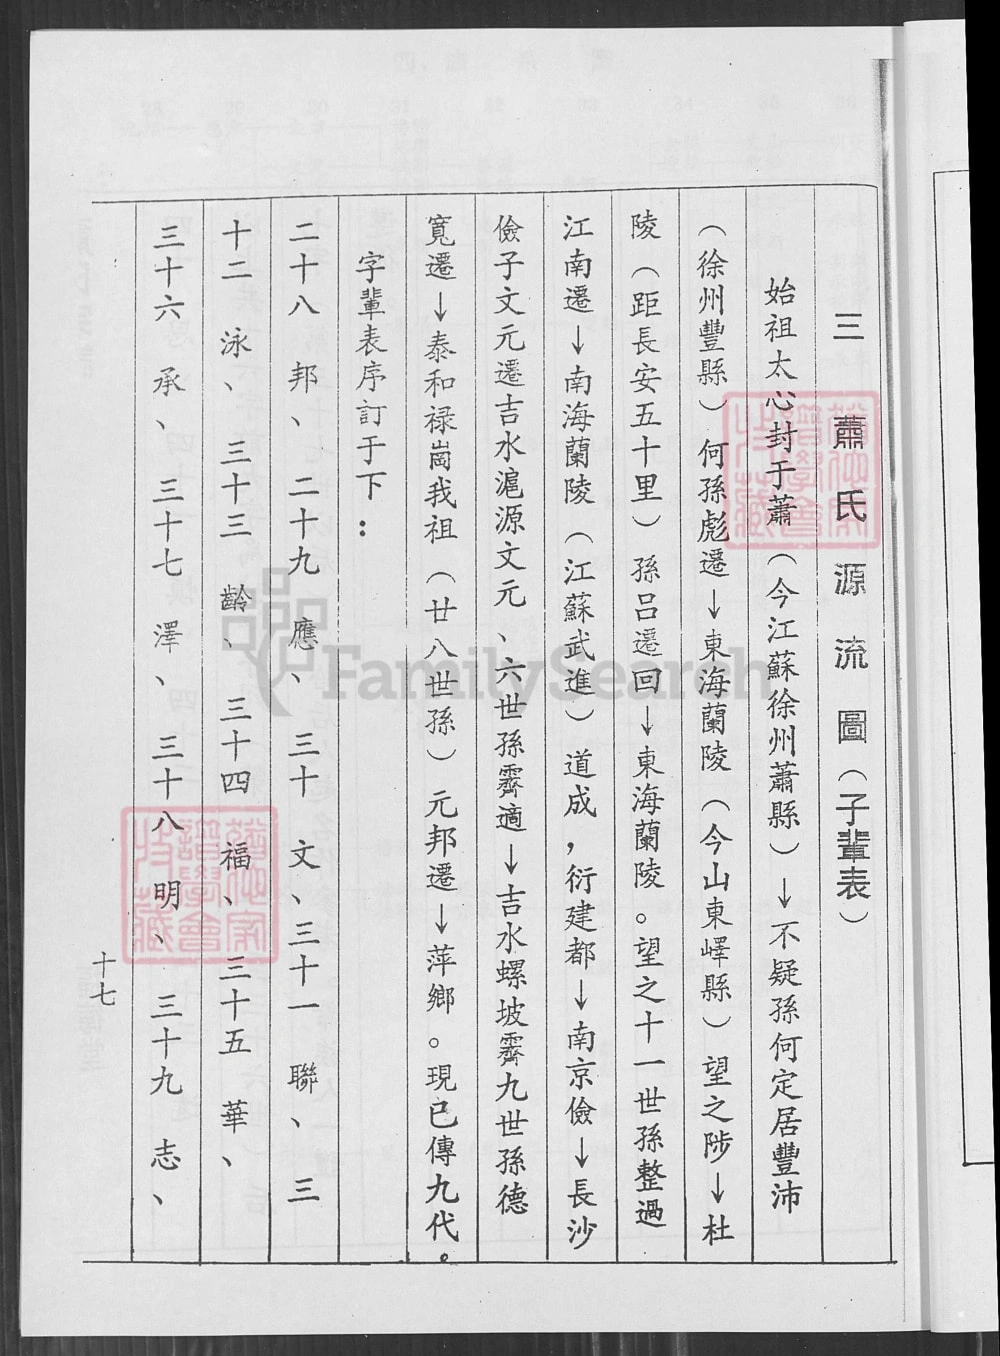 三 蕭氏源流圖（子輩表）
始祖太心封于蕭（今江蘇徐州蕭縣）→不疑孫何定居豐沛
（徐州豐縣）何孫彪遷→東海蘭陵（今山東嶧縣）望之陟→杜
陵（距長安五十里）孫呂遷回→東海蘭陵。望之十一世孫整過
江南遷→南海蘭陵（江蘇武進）道成，衍建都→南京儉→長沙
儉子文元遷吉水滬源文元、六世孫霽適→吉水螺坡霽九世孫德
寬遷→泰和禄崗我祖（廿八世孫）元邦遷→萍鄉。現已傳九代。
字輩表序訂于下：
二十八 邦、二十九 應、三十 文、三十一 聯、三
十二 泳、三十三 齡、三十四 福、三十五 華、
三十六 承、三十七 澤、三十八 明、三十九 志、
十七
FamilySearch